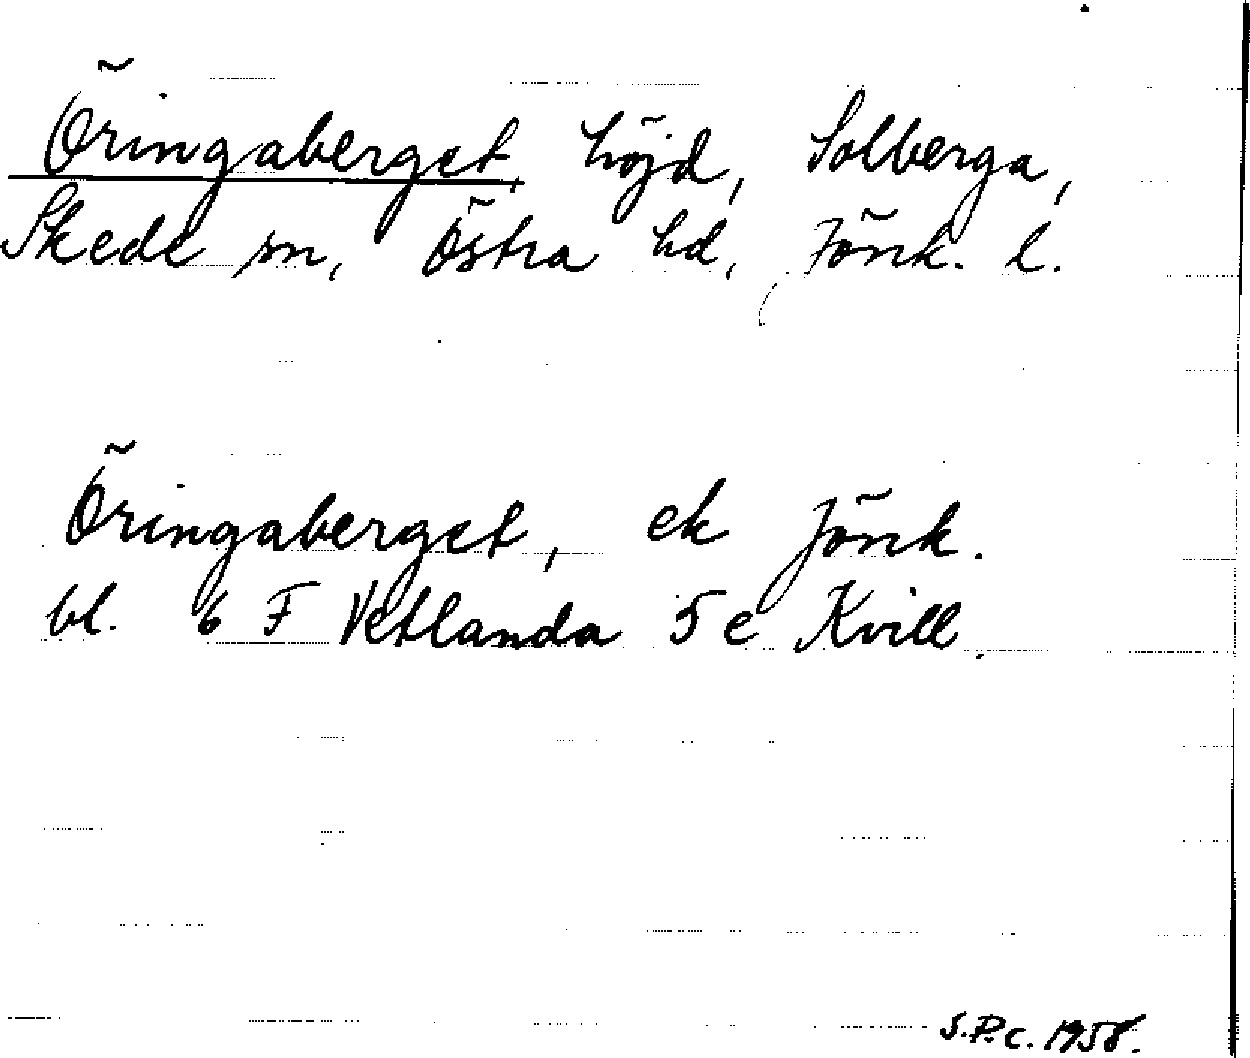 Öringaberget, höjd, Solberga,
Skede sn, Östra hd, Jönk. l.
Öringaberget, ek Jönk.
bl. 6 F Vetlanda 5 e Kvill.
S.P.c. 1958.